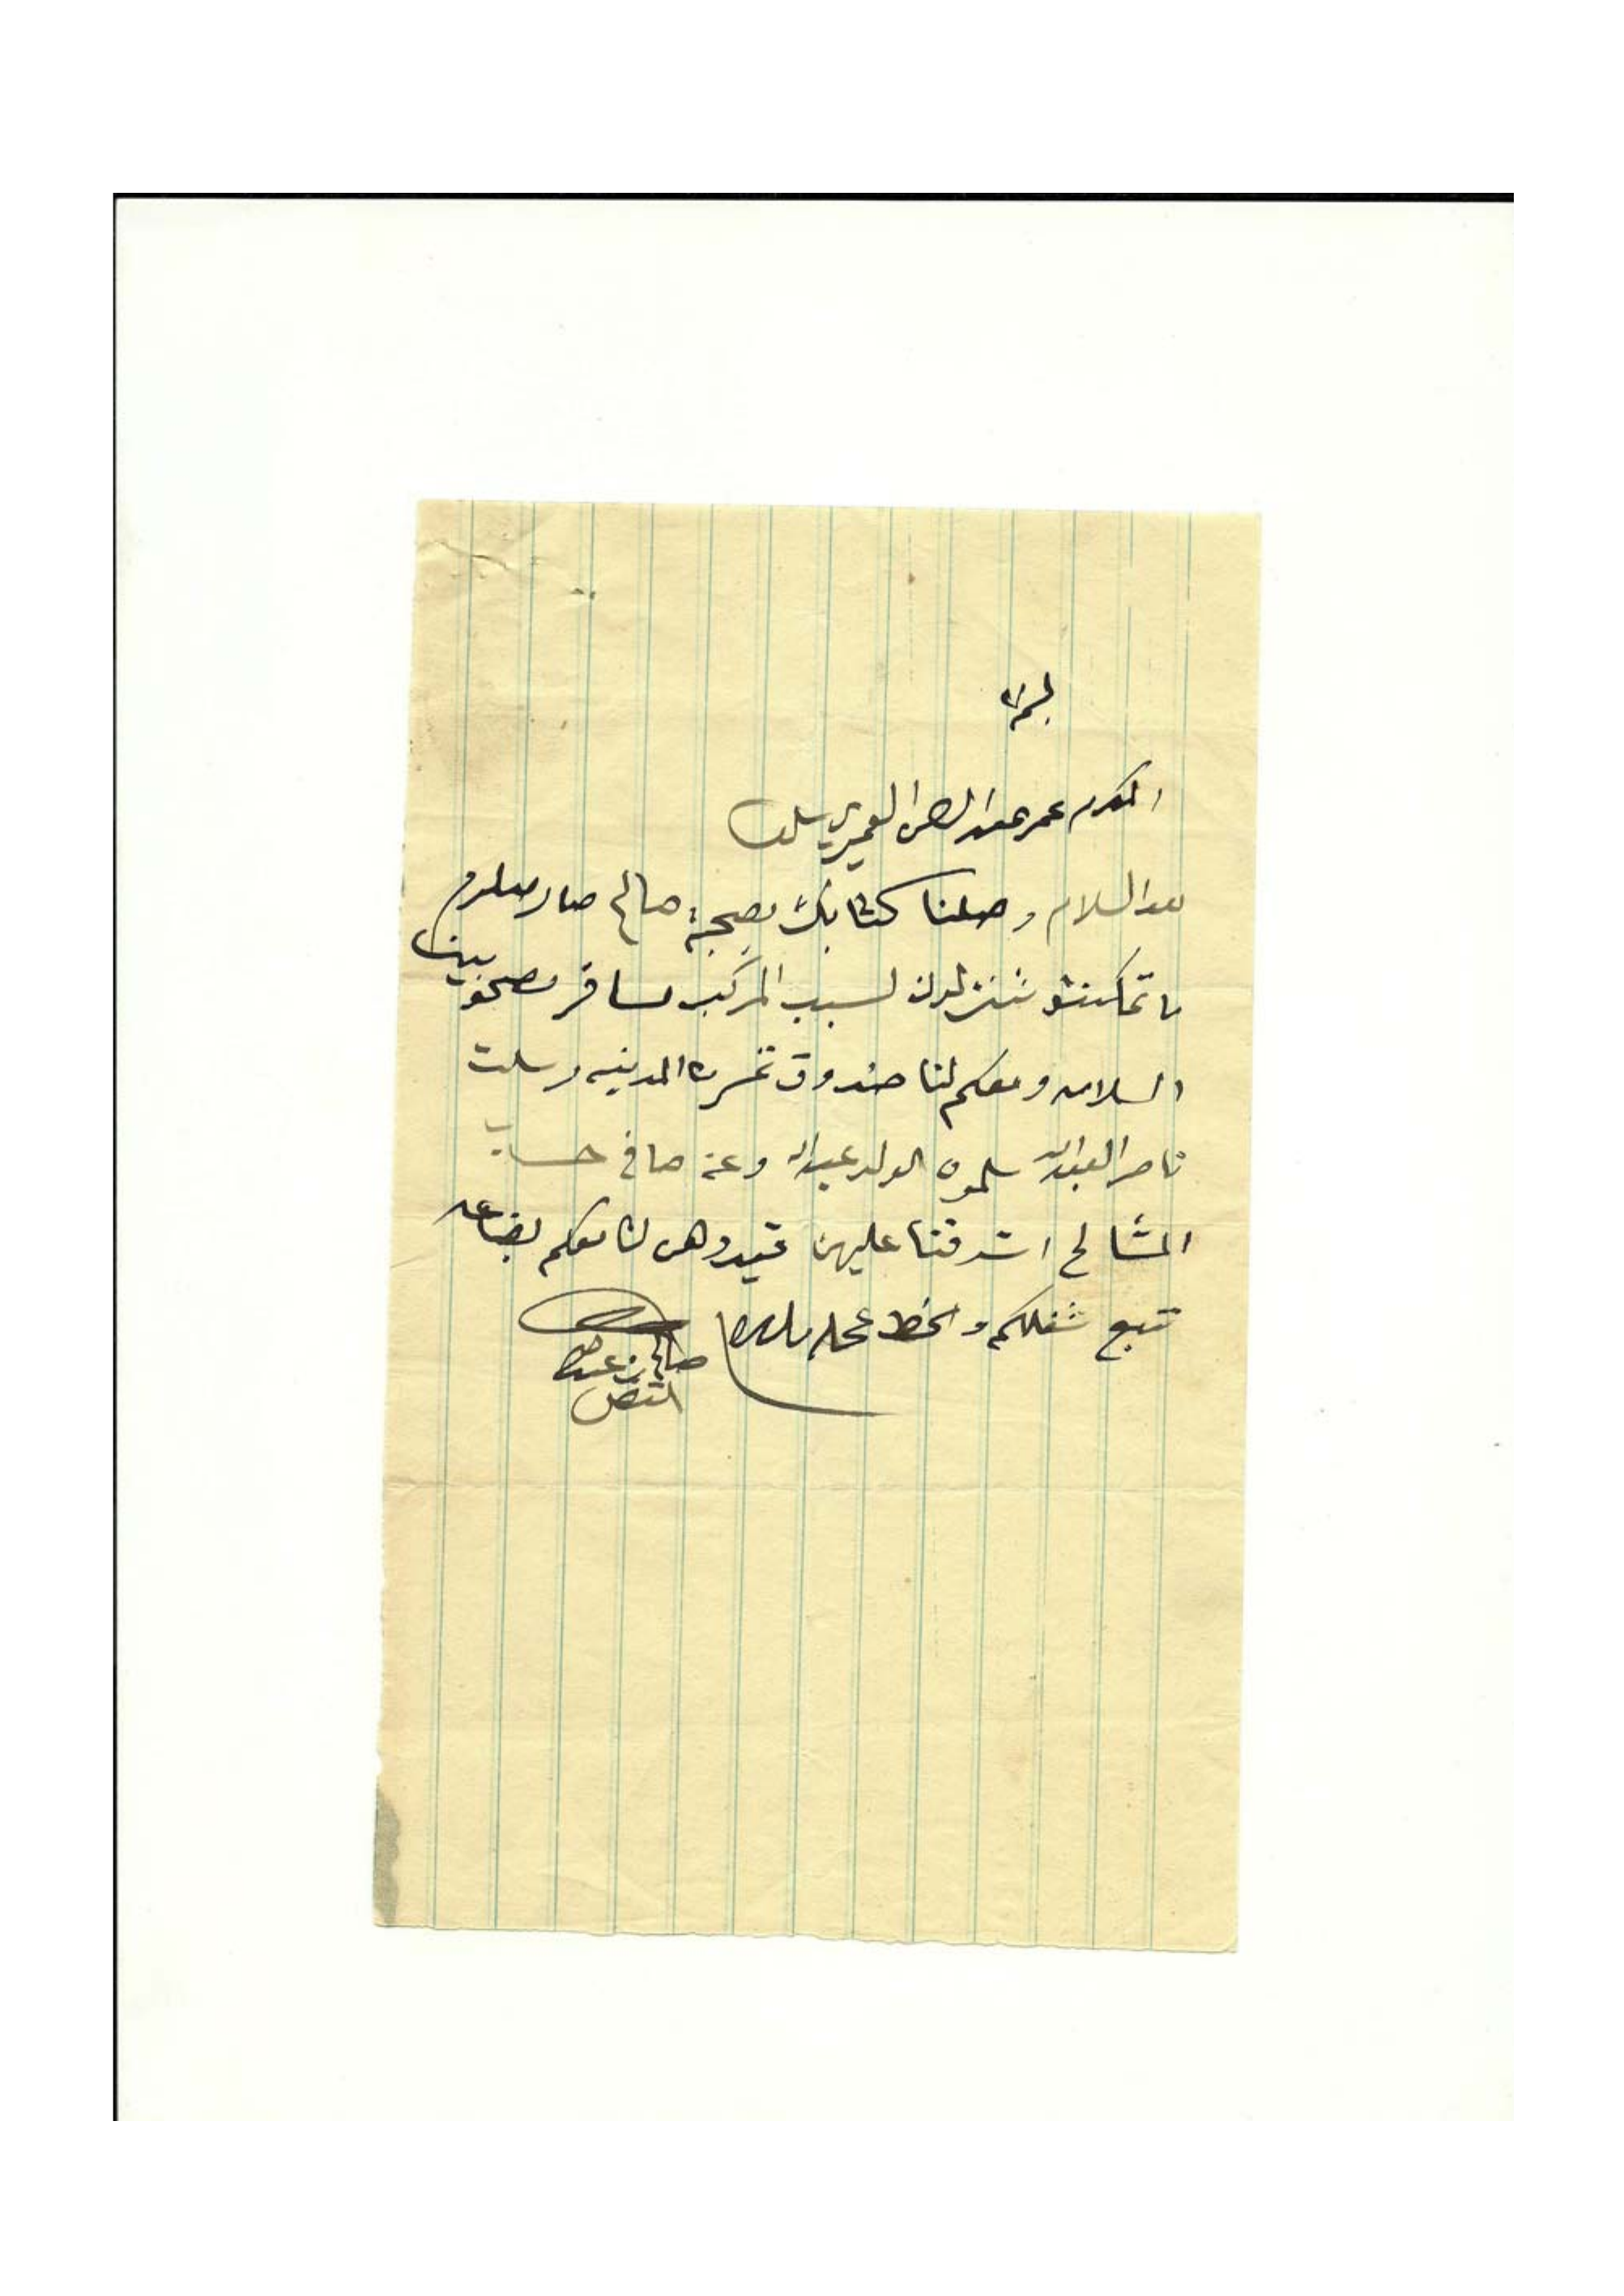 بسم الله
المكرم عمر عبدالرحمن العميري سلمه
بعد السلام وصلنا كتابك بصحبة صالح صار معلوم
ما تمكنتو تنزلون لسبب المركب مسافر مصحوبين
السلامه ومعكم لنا صندوق تمر من المدينه وسلت
ناصر العبدالله سلموه الولد عبدالله وعن صافي حساب
المشالح اشرفنا عليهن قيدوهن لنا معكم بضاعه
تبع شغلكم والخط عجله
صالح بن عبدالله